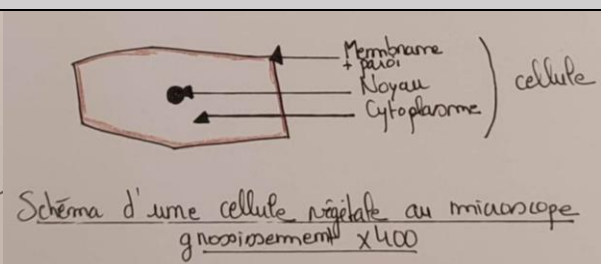 Membrane
+ paroi
Noyau
Cytoplasme
cellule
Schéma d'une cellule végétale au microscope
grossissement x400